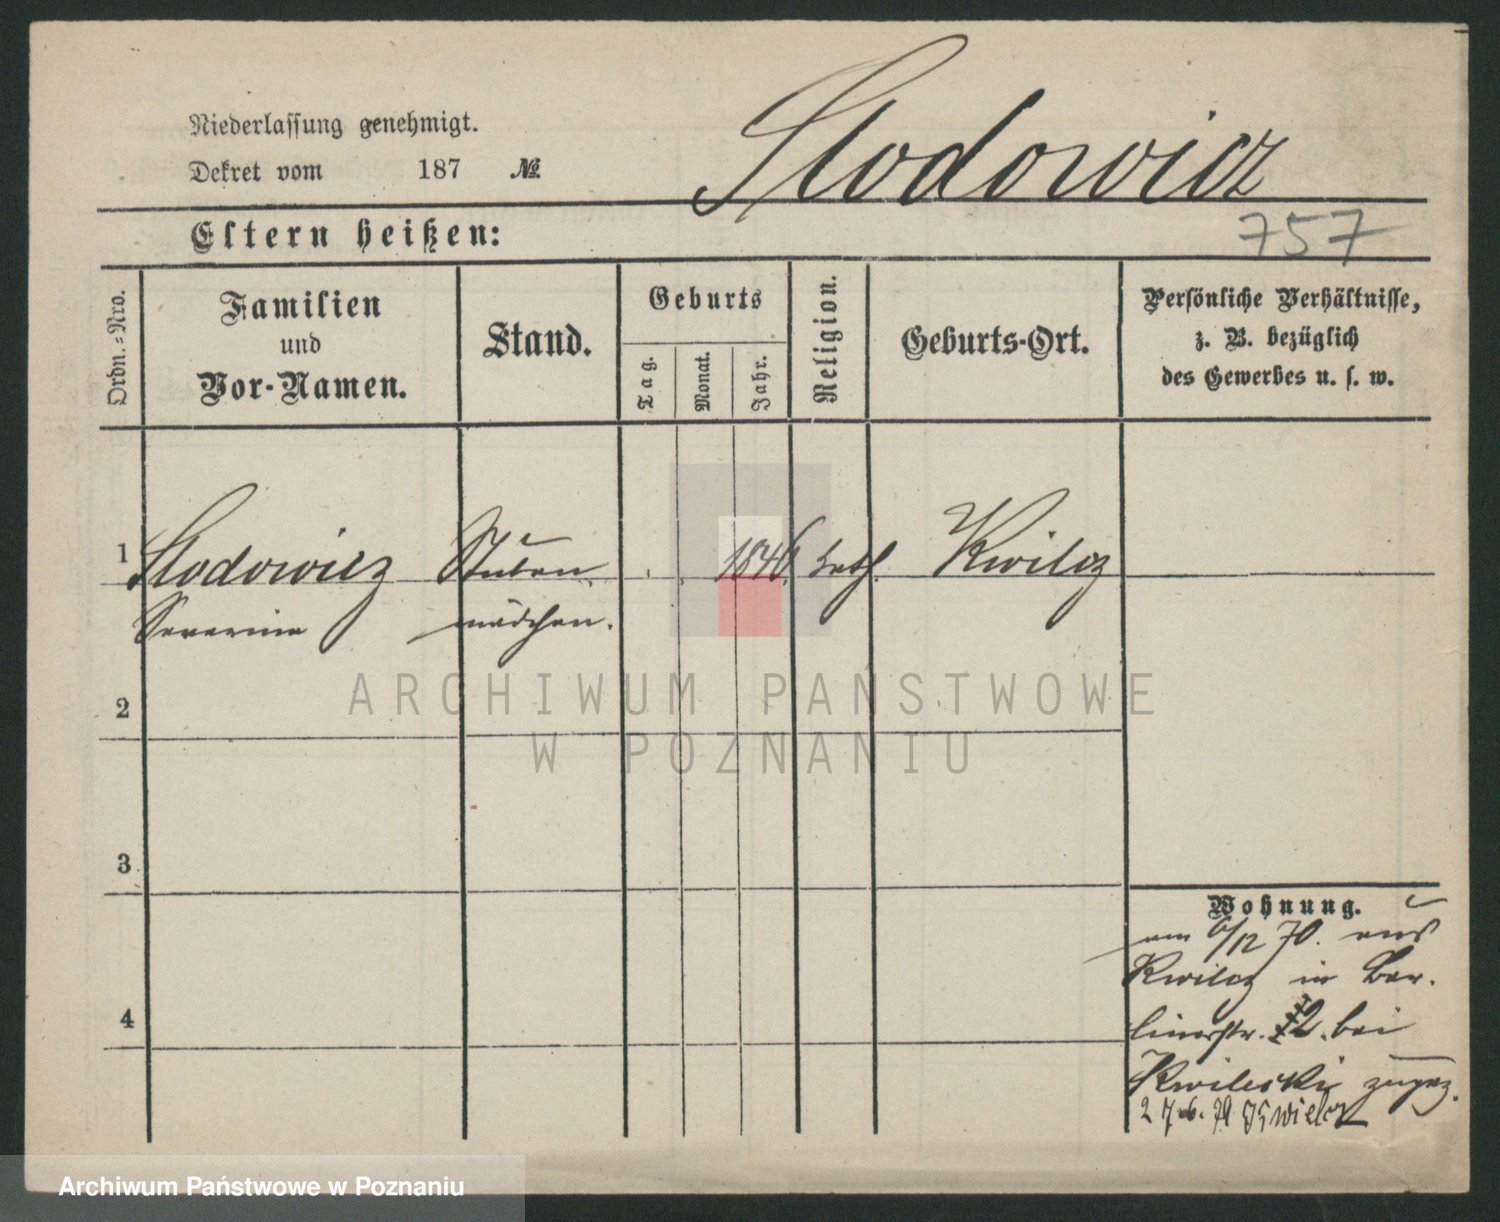 Niederlassung genehmigt.
Dekret vom 187 №
Slodowicz
757
Eltern heißen:
Ordn.=Nro.
Familien
und
Vor-Namen.
Stand.
Geburts
Tag.
Monat.
Jahr.
Religion.
Geburts-Ort.
Persönliche Verhältnisse,
z. B. bezüglich
des Gewerbes u. s. w.
1 Slodowicz Stuben 1846 kath. Kwilcz
Severine mädchen.
2
3
4
Wohnung.
am 6/12 70. aus
Kwilcz in Ber.
linerstr. 12. bei
Kwilecki zugez.
27.6. 71 Kwielcz
ARCHIWUM PAŃSTWOWE
W POZNANIU
Archiwum Państwowe w Poznaniu